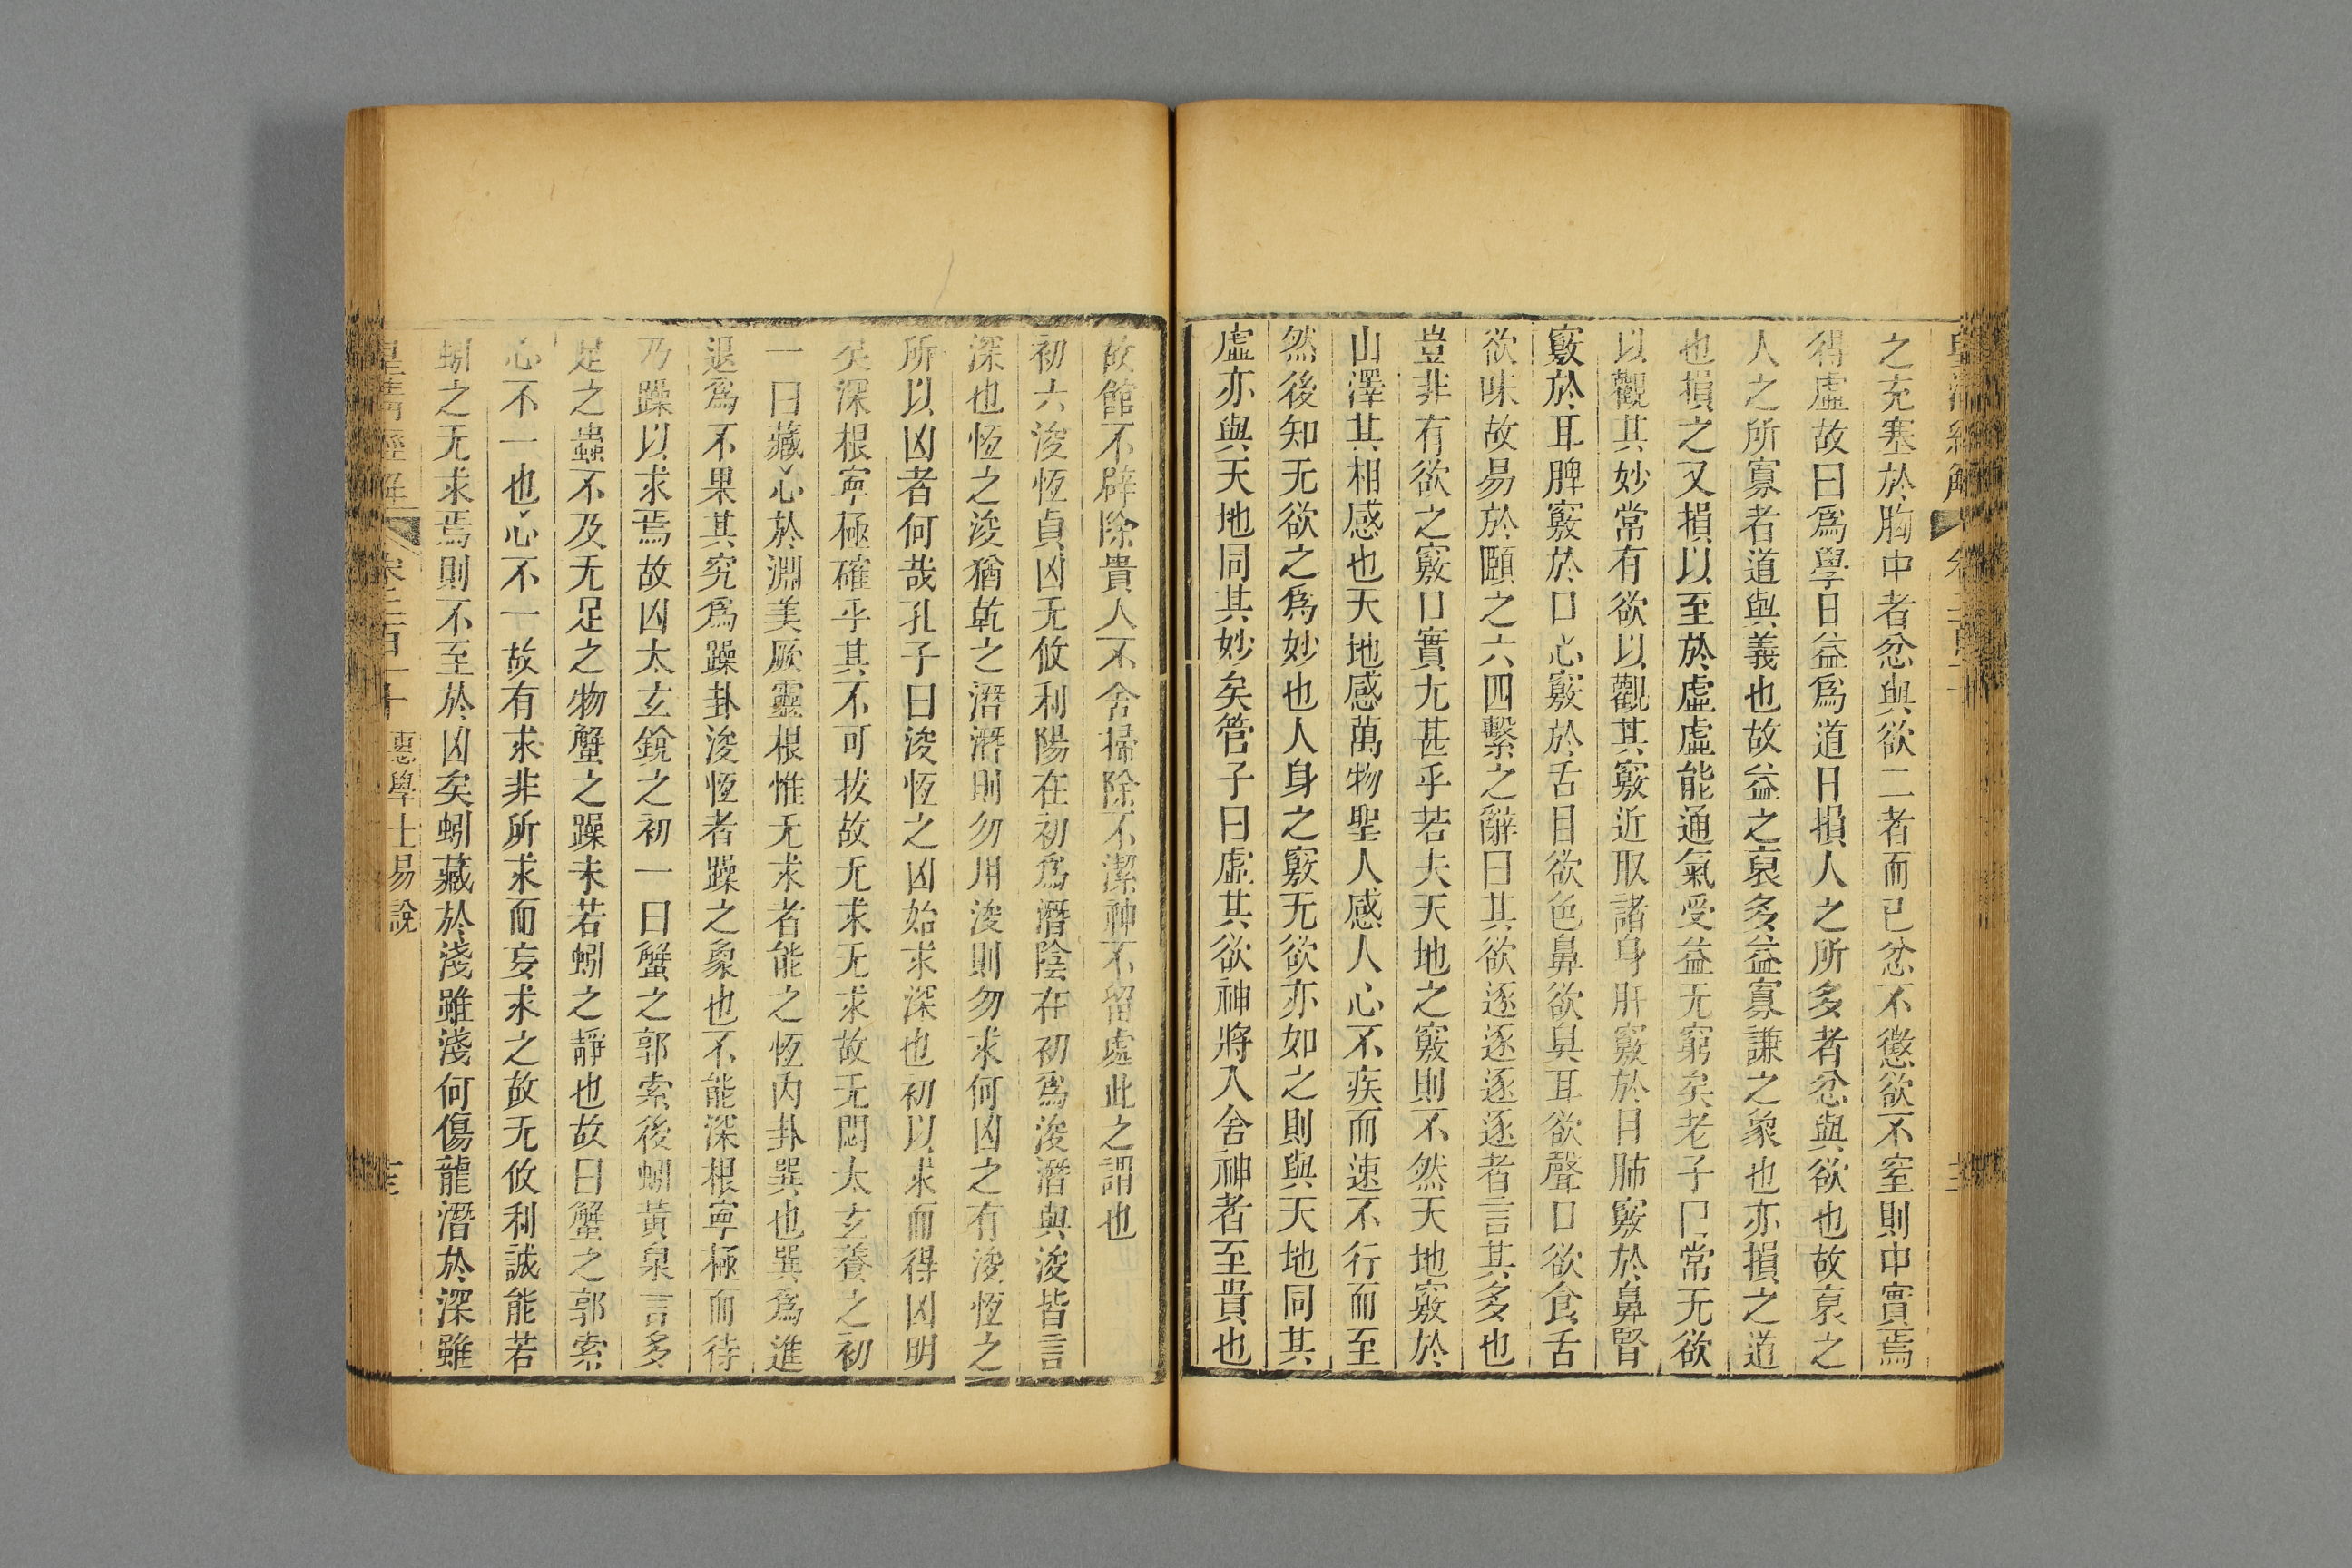 之充塞於胸中者忿與欲二者而已忿不懲欲不窒則中實焉
得虛故曰爲學日益爲道日損人之所多者忿與欲也故裒之
人之所寡者道與義也故益之裒多益寡謙之象也亦損之道
也損之又損以至於虛虛能通氣受益无窮矣老子曰常无欲
以觀其妙常有欲以觀其竅近取諸身肝竅於目肺竅於鼻腎
竅於耳脾竅於口心竅於舌目欲色鼻欲臭耳欲聲口欲食舌
欲味故易於頤之六四繫之辭曰其欲逐逐逐逐者言其多也
豈非有欲之竅口實尤甚乎若夫天地之竅則不然天地竅於
山澤其相感也天地感萬物聖人感人心不疾而速不行而至
然後知无欲之爲妙也人身之竅无欲亦如之則與天地同其
虛亦與天地同其妙矣管子曰虛其欲神將入舍神者至貴也
故館不辟除貴人不舍掃除不潔神不留處此之謂也
初六浚恆貞凶无攸利陽在初爲潛陰在初爲浚潛與浚皆言
深也恆之浚猶乾之潛潛則勿用浚則勿求何凶之有浚恆之
所以凶者何哉孔子曰浚恆之凶始求深也初以求而得凶明
矣深根寧極確乎其不可拔故无求无求故无悶太玄養之初
一曰藏心於淵美厥靈根惟无求者能之恆內卦巽也巽爲進
退爲不果其究爲躁卦浚恆者躁之象也不能深根寧極而待
乃躁以求焉故凶太玄銳之初一曰蟹之郭索後蚓黃泉言多
足之蟲不及无足之物蟹之躁未若蚓之靜也故曰蟹之郭索
心不一也心不一故有求非所求而妄求之故无攸利誠能若
蚓之无求焉則不至於凶矣蚓藏於淺雖淺何傷龍潛於深雖
皇清經解 卷二百一十 惠學士易說